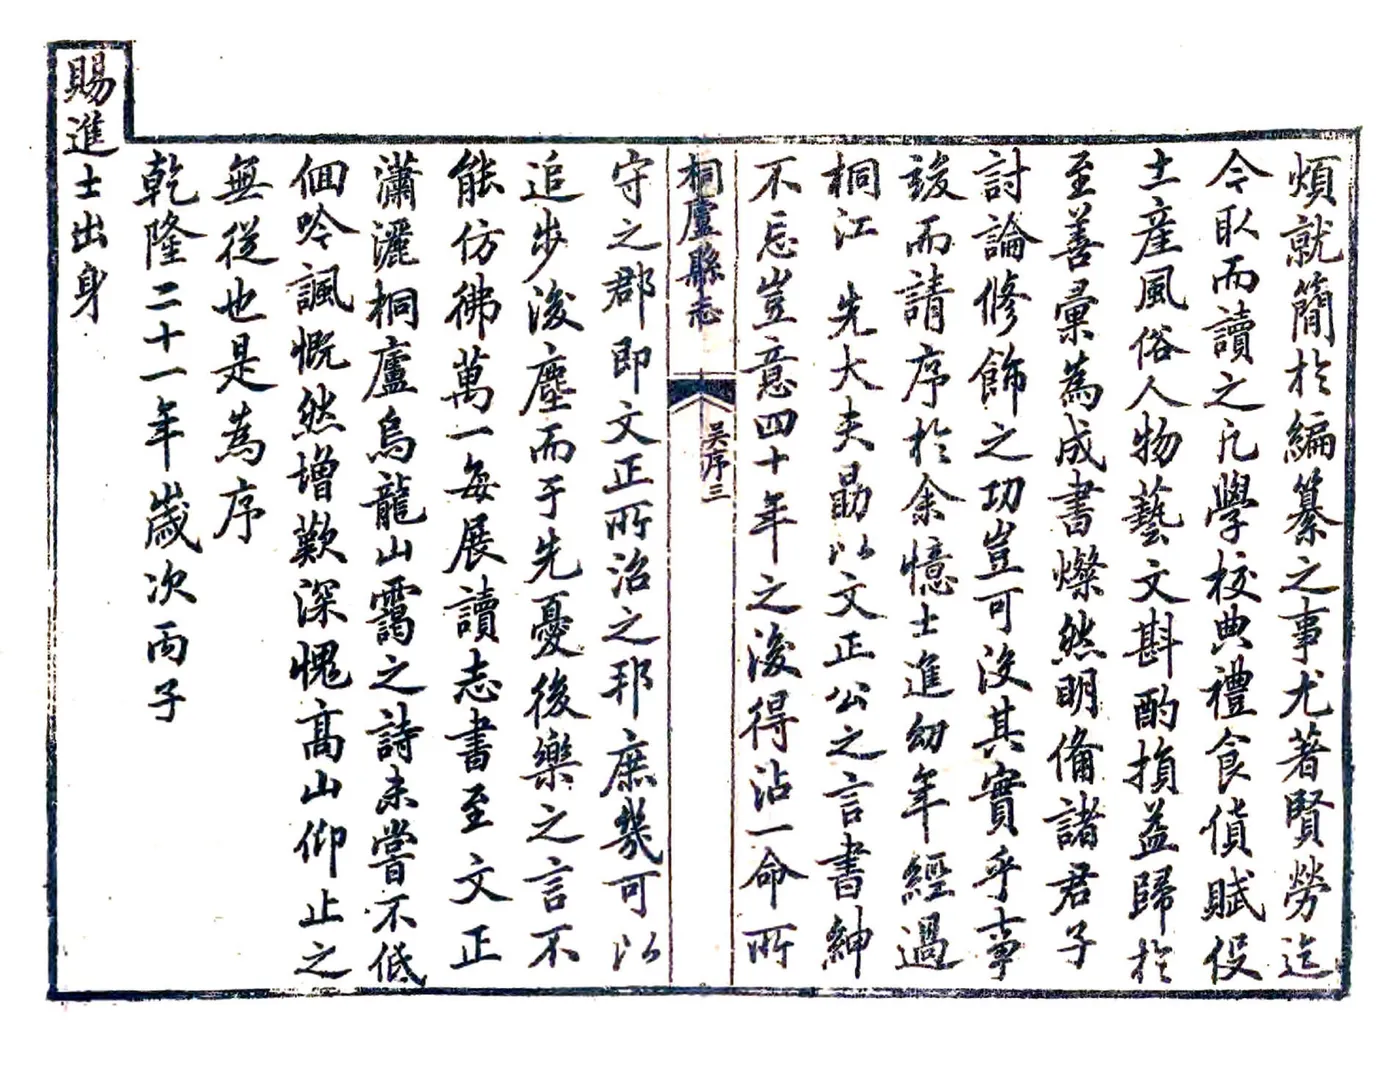 煩就簡於編纂之事尤著賢勞迄
今取而讀之凡學校典禮食貨賦役
土產風俗人物藝文斟酌損益歸於
至善彙為成書燦然明備諸君子
討論修飾之功豈可沒其實乎事
竣而請序於余憶士進幼年經過
桐江 先大夫勗以文正公之言書紳
不忘豈意四十年之後得沾一命所
桐廬縣志
吴序三
守之郡即文正所治之邦庶幾可以
追步後塵而于先憂後樂之言不
能仿彿萬一每展讀志書至文正
瀟灑桐廬烏龍山靄之詩未嘗不低
佪吟諷慨然增歎深愧高山仰止之
無從也是為序
乾隆二十一年歲次丙子
賜進士出身